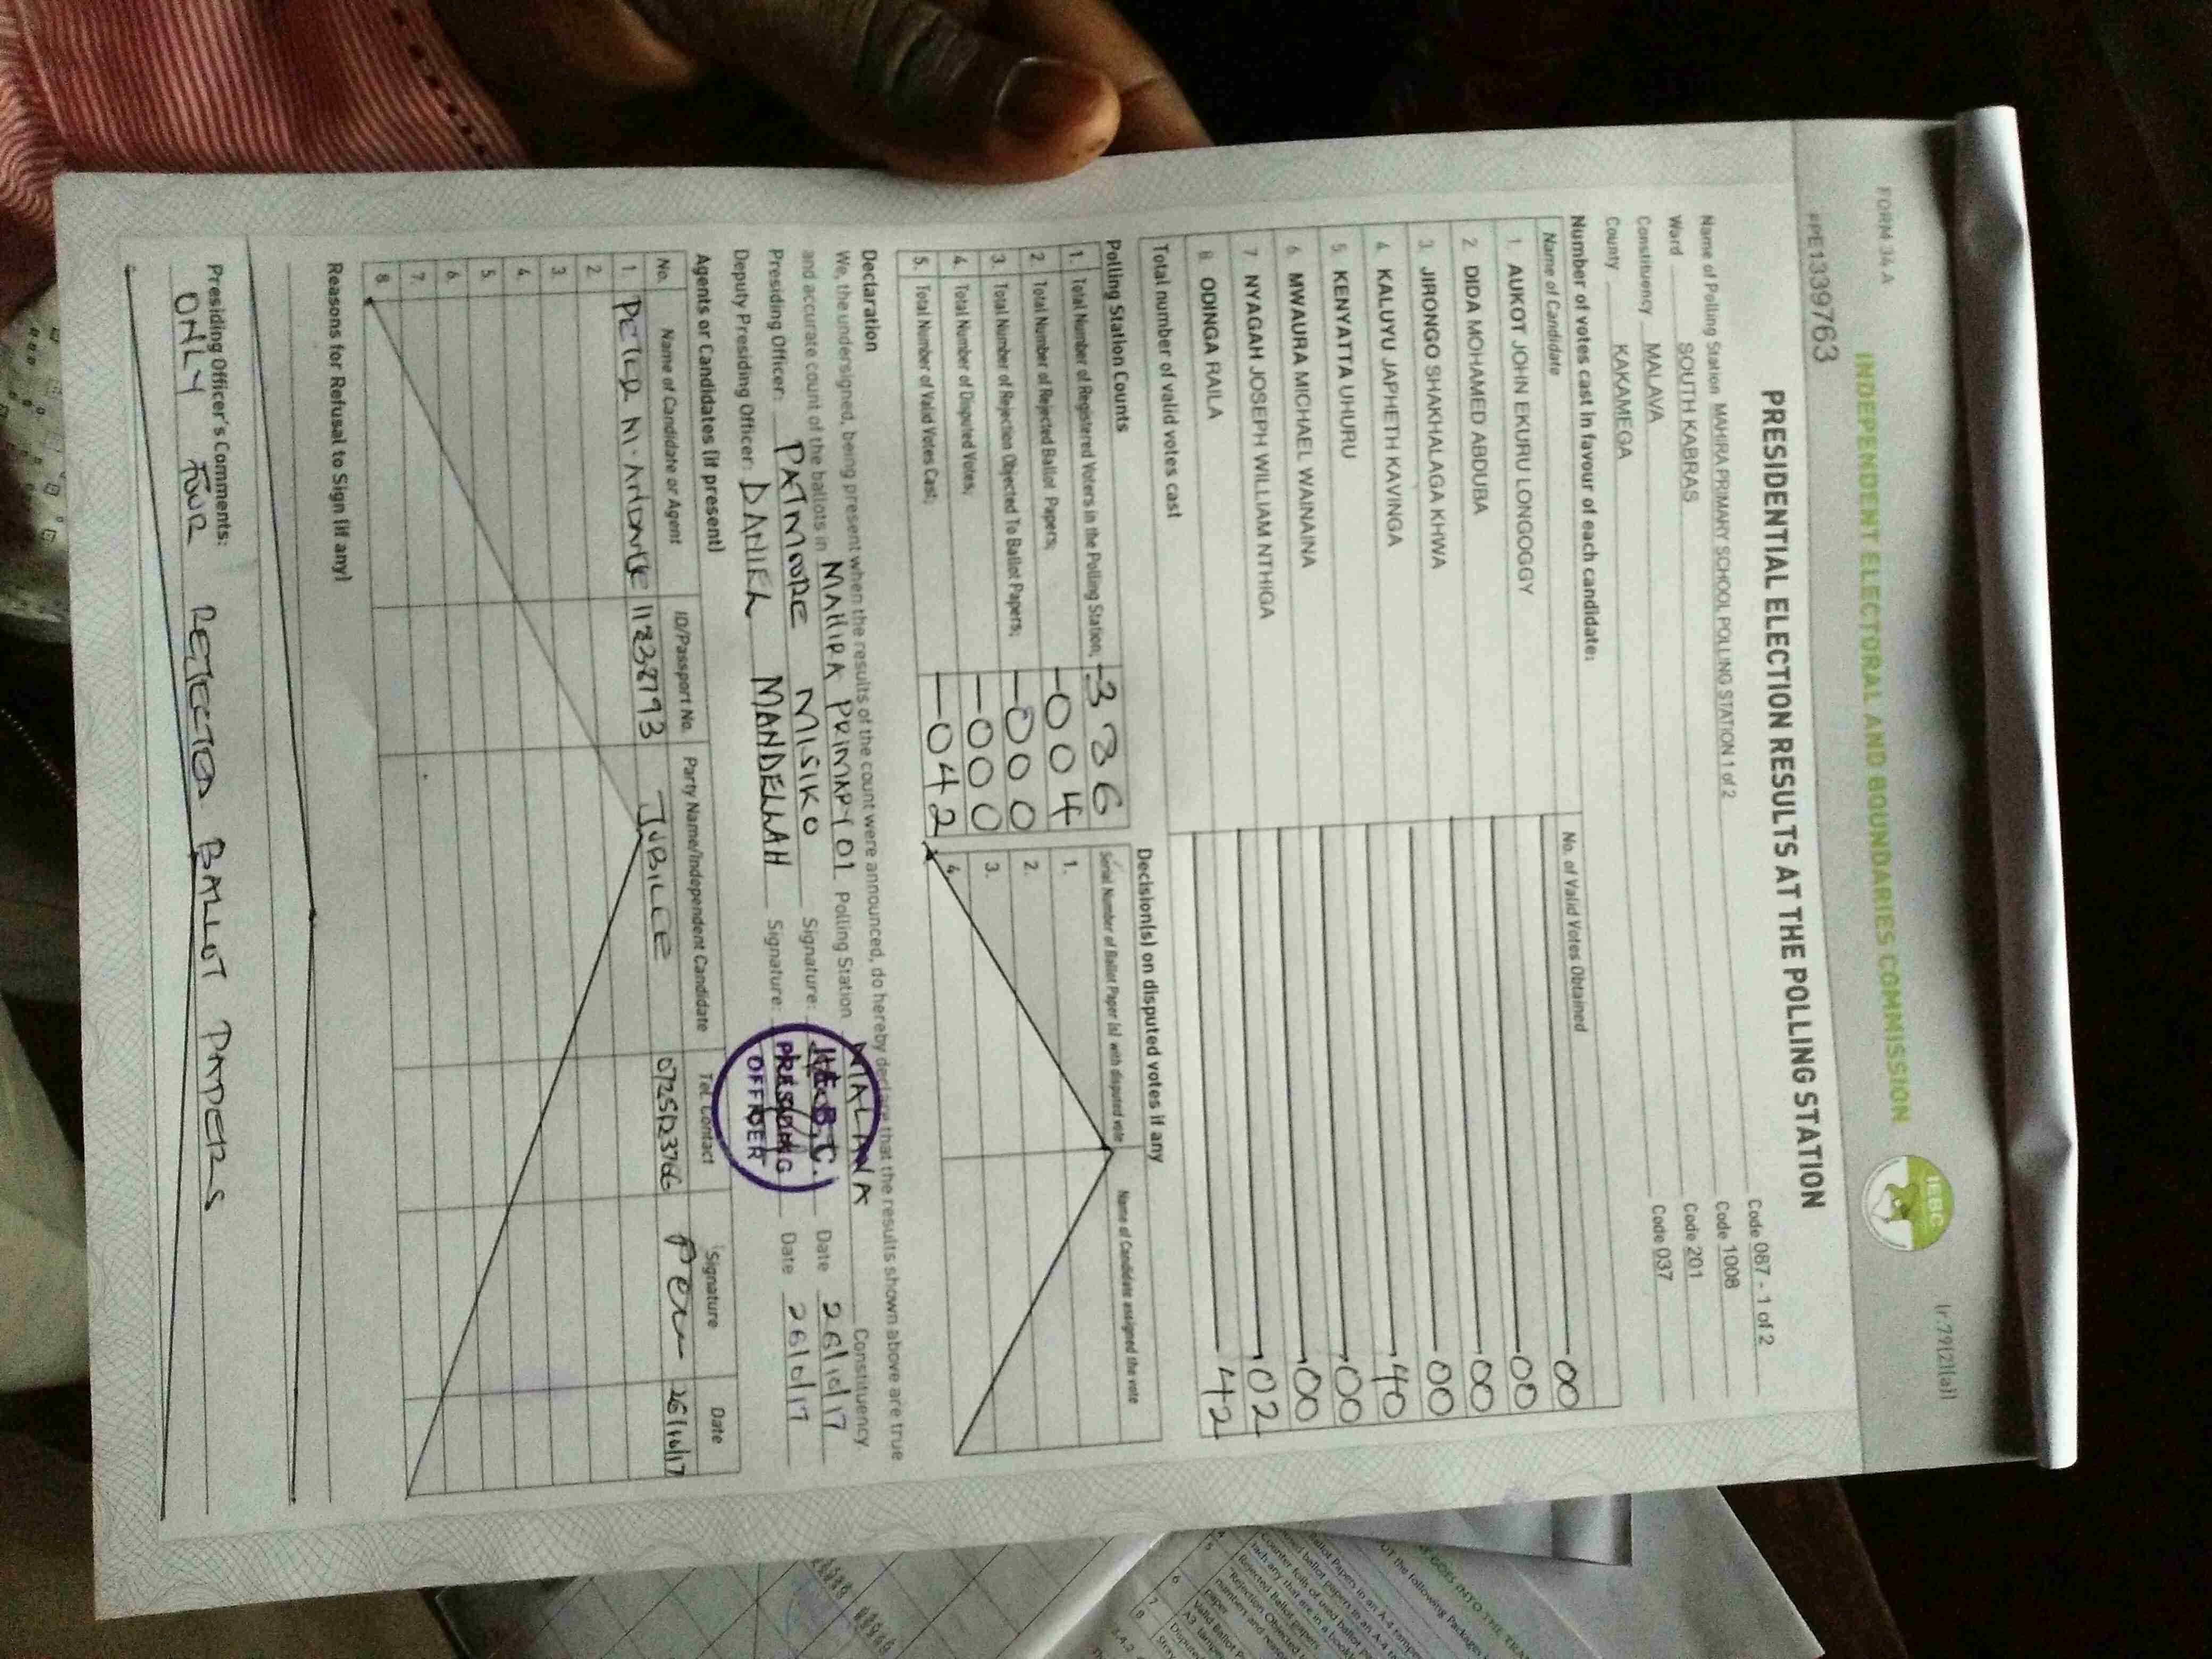 FORM 34 A
(r.79(2)(a))
INDEPENDENT ELECTORAL AND BOUNDARIES COMMISSION
IEBC
PPE1339763
PRESIDENTIAL ELECTION RESULTS AT THE POLLING STATION
Name of Polling Station MAHIRA PRIMARY SCHOOL POLLING STATION 1 of 2 Code 087 - 1 of 2
Ward SOUTH KABRAS Code 1008
Constituency MALAVA Code 201
County KAKAMEGA Code 037
Number of votes cast in favour of each candidate:
Name of Candidate No. of Valid Votes Obtained
1. AUKOT JOHN EKURU LONGOGGY 00
2. DIDA MOHAMED ABDUBA 00
3. JIRONGO SHAKHALAGA KHWA 00
4. KALUYU JAPHETH KAVINGA 00
5. KENYATTA UHURU 40
6. MWAURA MICHAEL WAINAINA 00
7 NYAGAH JOSEPH WILLIAM NTHIGA 00
8. ODINGA RAILA 02
Total number of valid votes cast 42
Polling Station Counts
1. Total Number of Registered Voters in the Polling Station; 336
2 Total Number of Rejected Ballot Papers; 004
3. Total Number of Rejection Objected To Ballot Papers; 000
4. Total Number of Disputed Votes; 000
5. Total Number of Valid Votes Cast; 042
Decision(s) on disputed votes if any
Serial Number of Ballot Paper (s) with disputed vote Name of Candidate assigned the vote
1.
2.
3.
4.
Declaration
We, the undersigned, being present when the results of the count were announced, do hereby declare that the results shown above are true
and accurate count of the ballots in MAHIRA PRIMARY 01 Polling Station MALAVA Constituency
Presiding Officer: PATMORE MISIKO Signature: Date 26/10/17
Deputy Presiding Officer: DANIEL MANDELLAH Signature: Date 26/10/17
I.E.B.C.
PRESIDING
OFFICER
Agents or Candidates (if present)
No. Name of Candidate or Agent ID/Passport No. Party Name/Independent Candidate Tel. Contact Signature Date
1. PETER M. JUBILEE 0725123766 26/10/17
2.
3.
4.
5.
6.
7.
8.
Reasons for Refusal to Sign (if any)
Presiding Officer's Comments:
ONLY FOUR REJECTED BALLOT PAPERS